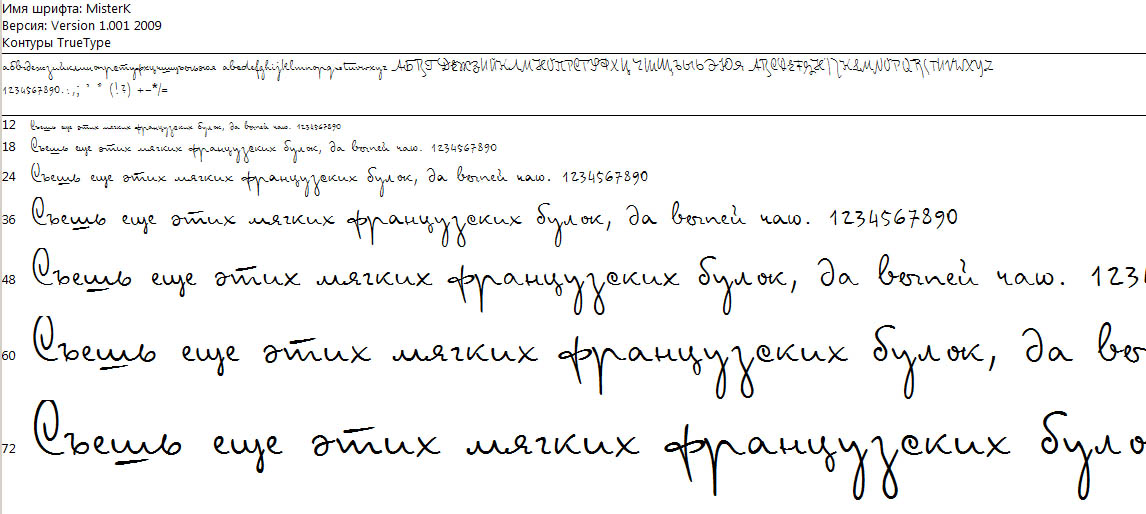 Имя шрифта: MisterK
Версия: Version 1.001 2009
Контуры TrueType
абвгдежзийклмнопрстуфхцчшщъыьэюя abcdefghijklmnopqrstuvwxyz АБВГДЕЖЗИЙКЛМНОПРСТУФХЦЧШЩЪЫЬЭЮЯ ABCDEFGHIJKLMNOPQRSTUVWXYZ
1234567890.:,; ' " (!?) +-*/=
12 Съешь еще этих мягких французских булок, да выпей чаю. 1234567890
18 Съешь еще этих мягких французских булок, да выпей чаю. 1234567890
24 Съешь еще этих мягких французских булок, да выпей чаю. 1234567890
36 Съешь еще этих мягких французских булок, да выпей чаю. 1234567890
48 Съешь еще этих мягких французских булок, да выпей чаю. 123
60 Съешь еще этих мягких французских булок, да вы
72 Съешь еще этих мягких французских було